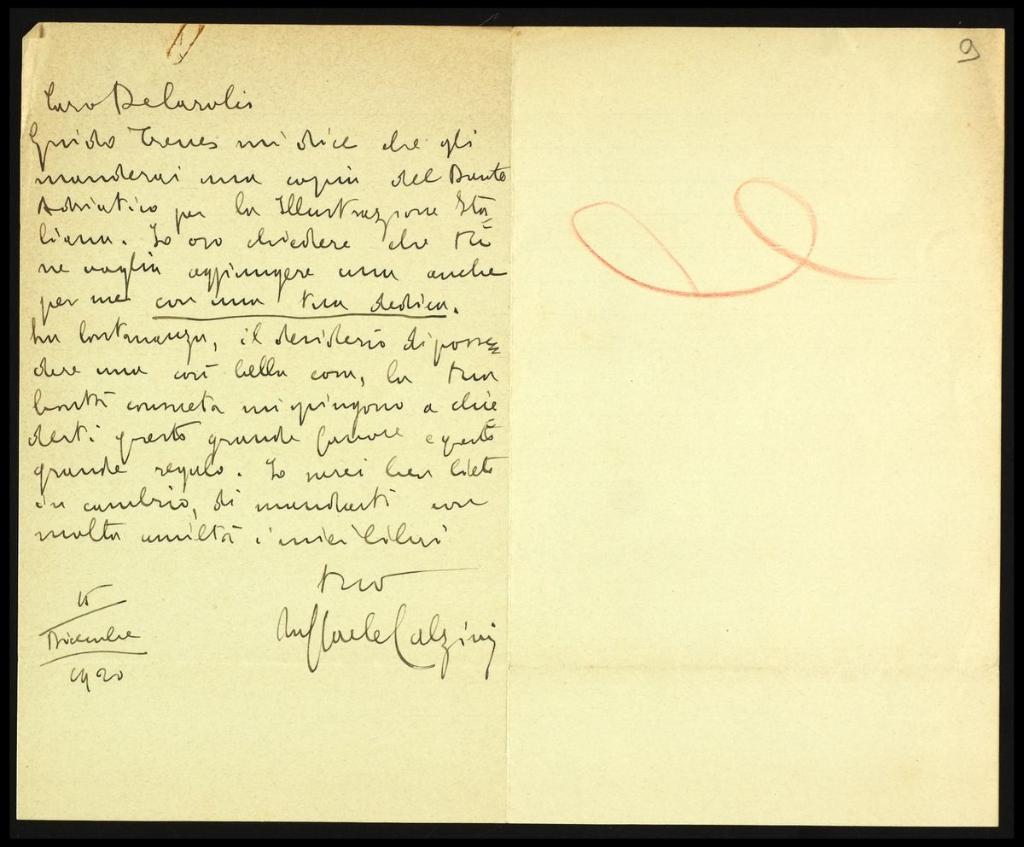 9
Caro De Carolis
Guido Treves mi dice che gli
manderai una copia del Dante
Adriatico per la Illustrazione Ita-
liana. Io oso chiedere che tu
ne voglia aggiungere una anche
per me con una tua dedica.
La lontananza, il desiderio di posse-
dere una così bella cosa, la tua
bontà consueta mi spingono a chie
derti questo grande favore e questo
grande regalo. Io sarei ben lieto
in cambio, di mandarti con
molta umiltà i miei libri
tuo
Raffaele Calzini
Dicembre
1920